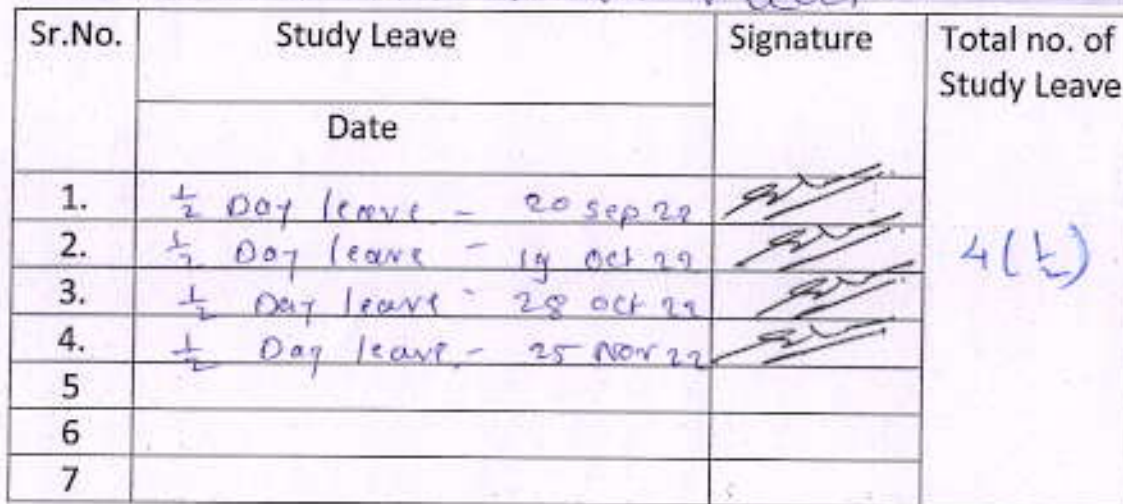 Sr.No. Study Leave Signature Total no. of
Study Leave
Date
1. ½ Day leave - 20 Sep 22
2. ½ Day leave - 19 Oct 22
3. ½ Day leave - 28 Oct 22
4. ½ Day leave - 25 Nov 22
4 (½)
5
6
7